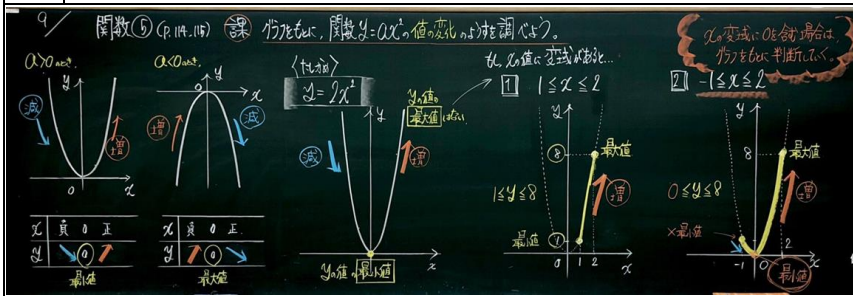 9/ 関数⑤ (P.114.115) 課 グラフをもとに、関数y=ax²の値の変化のようすを調べよう。
xの変域に0を含む場合は、
グラフをもとに判断していく。
a>0のとき。
y
減
増
0
x
x 負 0 正
y 0
最小値
a<0のとき。
y
0
x
増
減
x 負 0 正.
y 0
最大値
〈たしかめ〉
y=2x²
y
yの値の
最大値はない
減
増
x
yの値の最小値
もし、xの値に変域があると…
1 1≦x≦2
y
8
最大値
1≦y≦8
増
最小値
0 1 2 x
2 -1≦x≦2
y
8
最大値
0≦y≦8
増
×最小値
-1 0 2 x
最小値